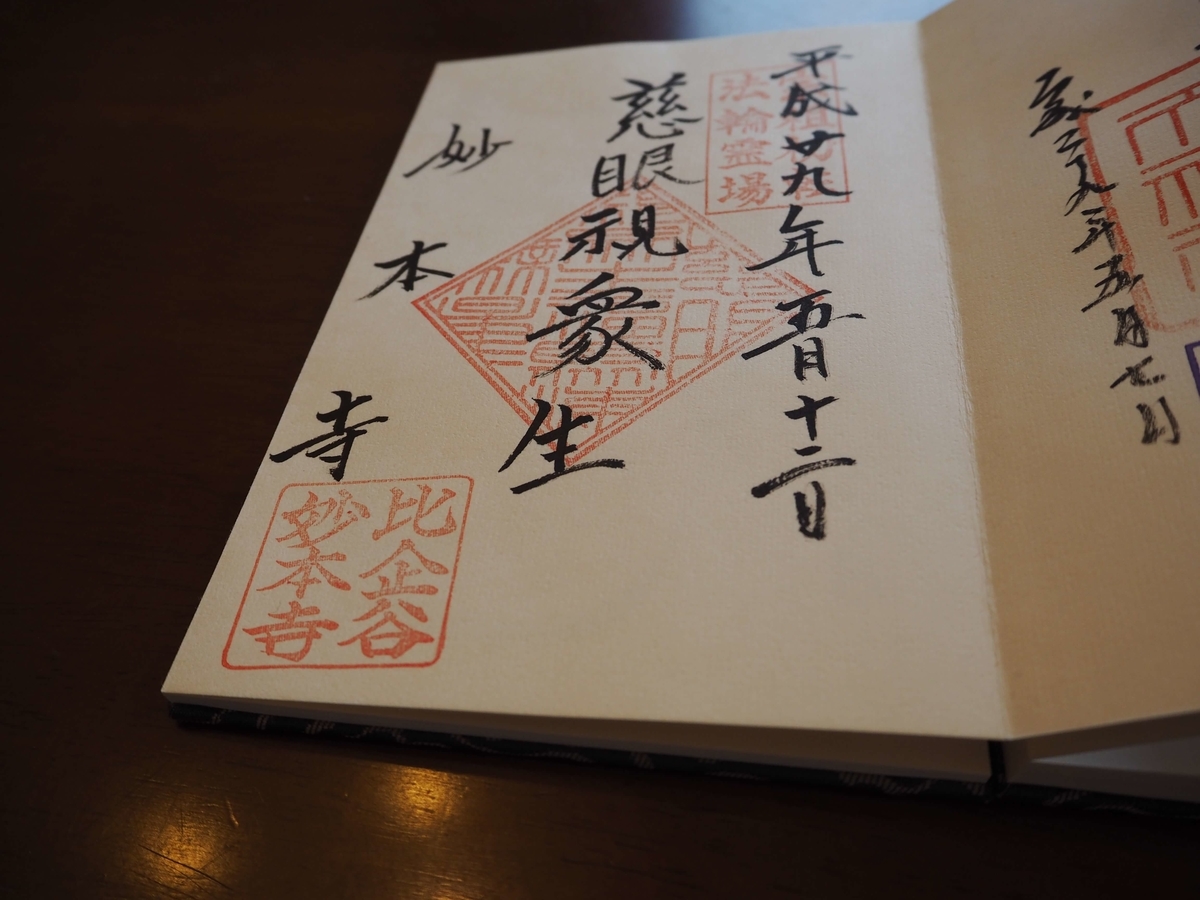 平成二九年五月七日
平成廿九年五月十二日
法輪霊場
慈眼視衆生
妙本寺
比企谷
妙本寺